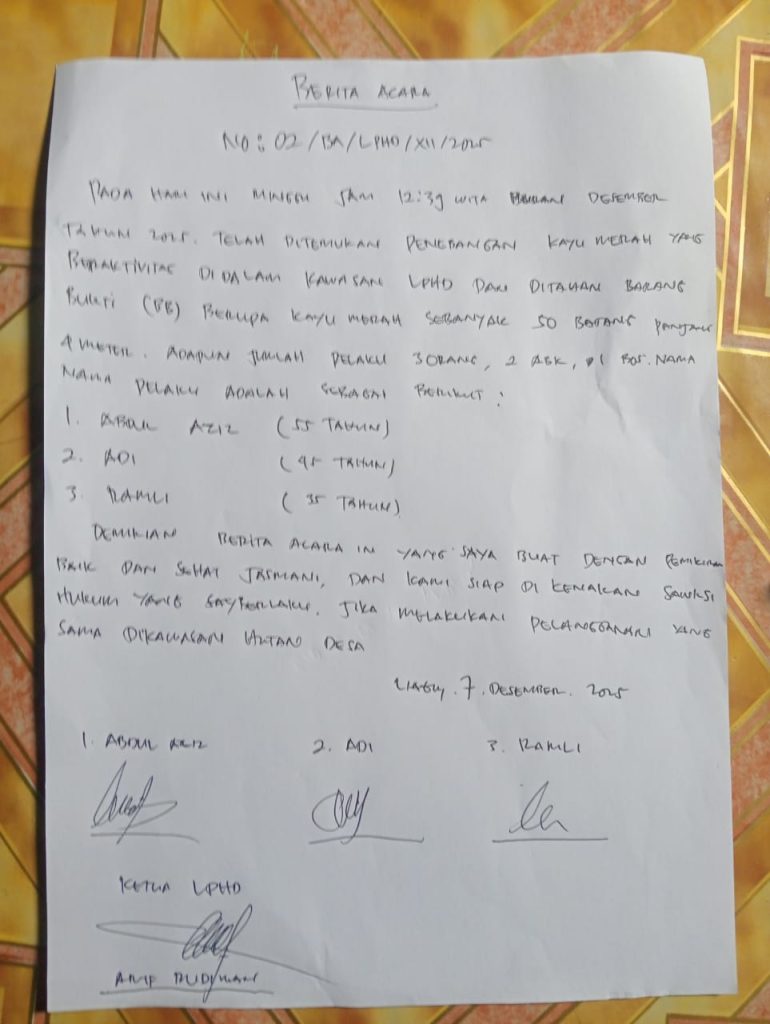 BERITA ACARA
NO: 02/BA/LPHD/XII/2025
PADA HARI INI MINGGU JAM 12:39 WITA BULAN DESEMBER
TAHUN 2025. TELAH DITEMUKAN PENEBANGAN KAYU MERAH YANG
BERAKTIVITAS DIDALAM KAWASAN LPHD DAN DITAHAN BARANG
BUKTI (BB) BERUPA KAYU MERAH SEBANYAK 50 BATANG PANJANG
4 METER. ADAPUN JUMLAH PELAKU 3 ORANG, 2 ABK, 1 BOS. NAMA
NAMA PELAKU ADALAH SEBAGAI BERIKUT:
1. ABDUL AZIZ (55 TAHUN)
2. ADI (45 TAHUN)
3. RAMLI (35 TAHUN)
DEMIKIAN BERITA ACARA INI YANG SAYA BUAT DENGAN PEMIKIRAN
BAIK DAN SEHAT JASMANI, DAN KAMI SIAP DI KENAKAN SANKSI
HUKUM YANG BERLAKU. JIKA MELAKUKAN PELANGGARAN YANG
SAMA DIKAWASAN HUTAN DESA
7. DESEMBER. 2025
1. ABDUL AZIZ 2. ADI 3. RAMLI
KETUA LPHD
ARIF BUDIMAN